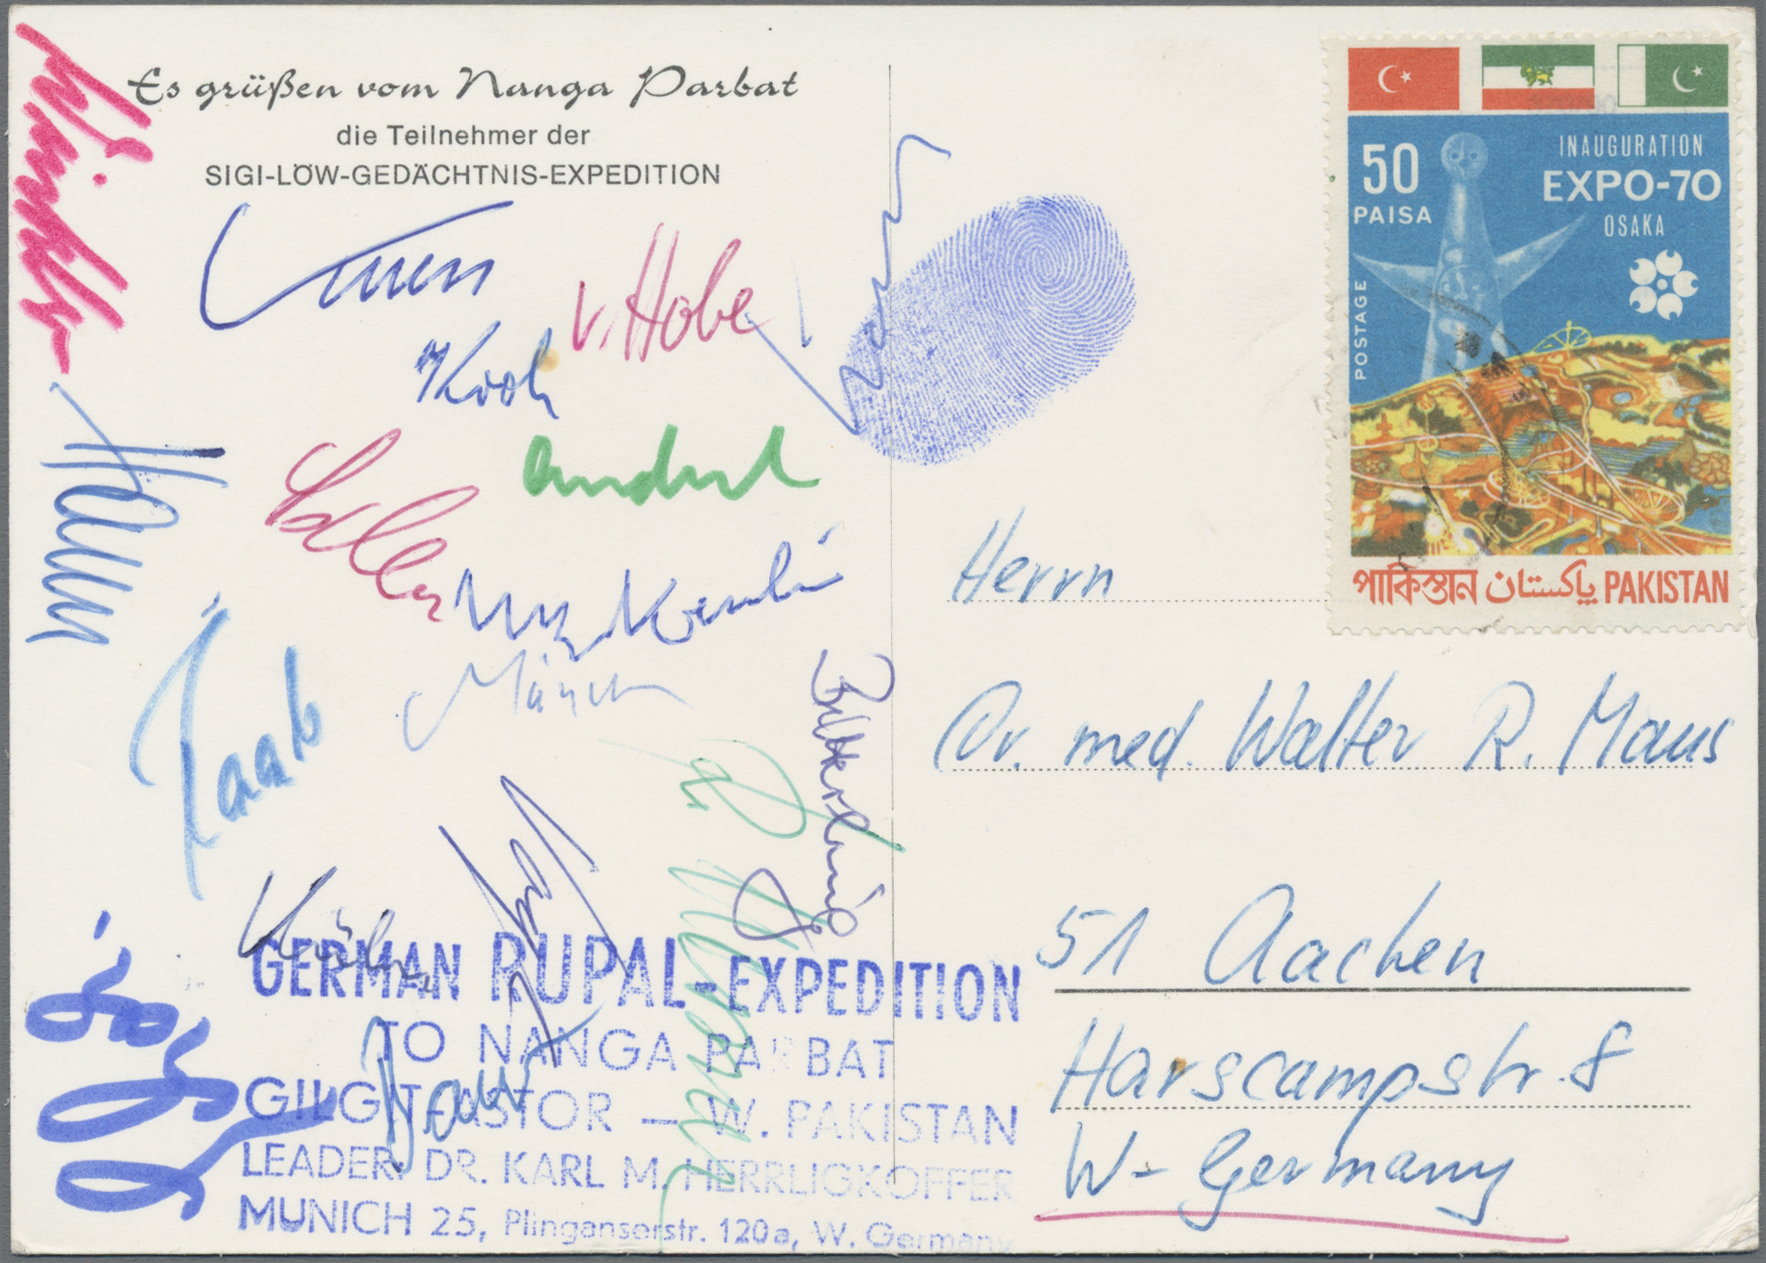 Es grüßen vom Nanga Parbat
die Teilnehmer der
SIGI-LÖW-GEDÄCHTNIS-EXPEDITION
Winkler
v. Hobe
Kroh
Saller
Mänch
Raab
Bitterling
GERMAN RUPAL-EXPEDITION
TO NANGA PARBAT
GILGIT-ASTOR — W. PAKISTAN
LEADER: DR. KARL M. HERRLIGKOFFER
MUNICH 25, Plinganserstr. 120a, W. Germany
50
PAISA
INAUGURATION
EXPO-70
OSAKA
POSTAGE
পাকিস্তান پاکستان PAKISTAN
Herrn
Dr. med. Walter R. Maus
51 Aachen
Harscampstr. 8
W-Germany